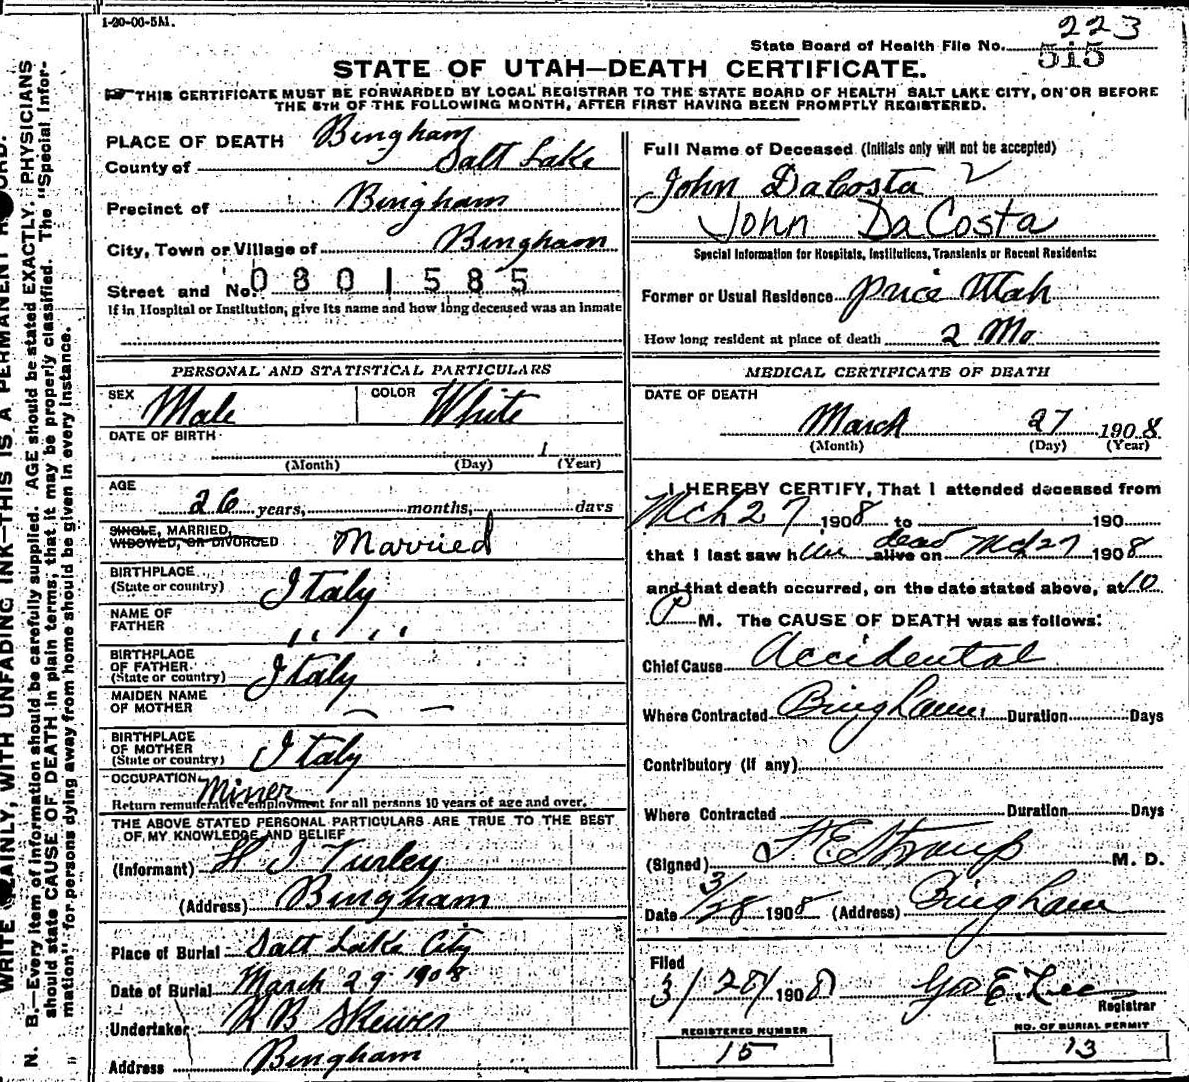 1-20-00-5M.
223
State Board of Health File No. 515
STATE OF UTAH—DEATH CERTIFICATE.
THIS CERTIFICATE MUST BE FORWARDED BY LOCAL REGISTRAR TO THE STATE BOARD OF HEALTH SALT LAKE CITY, ON OR BEFORE
THE 5TH OF THE FOLLOWING MONTH, AFTER FIRST HAVING BEEN PROMPTLY REGISTERED.
PLACE OF DEATH Bingham
County of Salt Lake
Precinct of Bingham
City, Town or Village of Bingham
Street and No. 0801585
If in Hospital or Institution, give its name and how long deceased was an inmate
PERSONAL AND STATISTICAL PARTICULARS
SEX Male COLOR White
DATE OF BIRTH 1
(Month) (Day) (Year)
AGE
26 years, months, days
SINGLE, MARRIED,
WIDOWED, OR DIVORCED Married
BIRTHPLACE
(State or country) Italy
NAME OF
FATHER " "
BIRTHPLACE
OF FATHER
(State or country) Italy
MAIDEN NAME
OF MOTHER — —
BIRTHPLACE
OF MOTHER
(State or country) Italy
OCCUPATION Miner
Return remunerative employment for all persons 10 years of age and over.
THE ABOVE STATED PERSONAL PARTICULARS ARE TRUE TO THE BEST
OF MY KNOWLEDGE AND BELIEF
(Informant) H J Turley
(Address) Bingham
Place of Burial Salt Lake City
Date of Burial March 29 1908
Undertaker R B Skewes
Address Bingham
Full Name of Deceased (Initials only will not be accepted)
John DaCosta
John DaCosta
Special Information for Hospitals, Institutions, Transients or Recent Residents:
Former or Usual Residence Price Utah
How long resident at place of death 2 Mo
MEDICAL CERTIFICATE OF DEATH
DATE OF DEATH
March 27 1908
(Month) (Day) (Year)
I HEREBY CERTIFY, That I attended deceased from
Mch 27 1908 to 190
that I last saw him dead alive on Mch 27 1908
and that death occurred, on the date stated above, at 10
P M. The CAUSE OF DEATH was as follows:
Chief Cause Accidental
Where Contracted Bingham Duration Days
Contributory (if any)
Where Contracted Duration Days
(Signed) F E Straup M. D.
Date 3/28 1908 (Address) Bingham
Filed
3/28/ 1908 Geo E. Lee
Registrar
REGISTERED NUMBER
15
NO. OF BURIAL PERMIT
13
WRITE PLAINLY, WITH UNFADING INK—THIS IS A PERMANENT RECORD.
N. B.—Every item of information should be carefully supplied. AGE should be stated EXACTLY. PHYSICIANS
should state CAUSE OF DEATH in plain terms, that it may be properly classified. The "Special Infor-
mation" for persons dying away from home should be given in every instance.